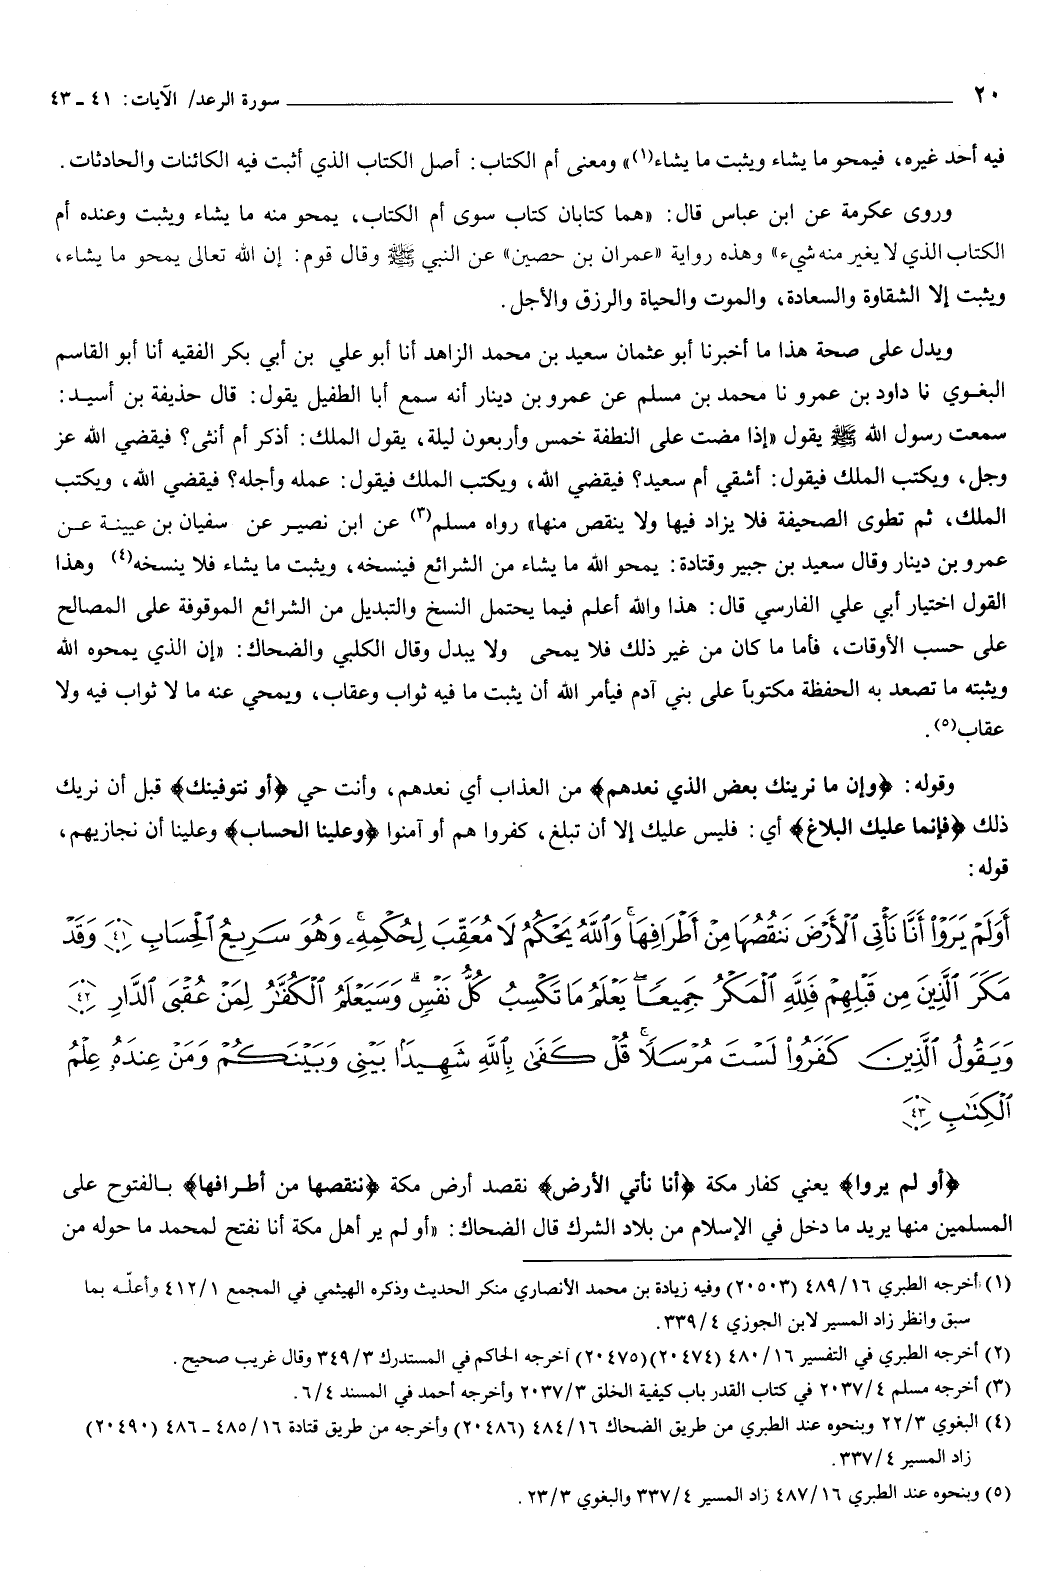 ٢٠ سورة الرعد/ الآيات: ٤١ ـ ٤٣
فيه أحد غيره، فيمحو ما يشاء ويثبت ما يشاء(١)» ومعنى أم الكتاب: أصل الكتاب الذي أثبت فيه الكائنات والحادثات.
وروى عكرمة عن ابن عباس قال: «هما كتابان كتاب سوى أم الكتاب، يمحو منه ما يشاء ويثبت وعنده أم
الكتاب الذي لا يغير منه شيء» وهذه رواية «عمران بن حصين» عن النبي ﷺ وقال قوم: إن الله تعالى يمحو ما يشاء،
ويثبت إلا الشقاوة والسعادة، والموت والحياة والرزق والأجل.
ويدل على صحة هذا ما أخبرنا أبو عثمان سعيد بن محمد الزاهد أنا أبو علي بن أبي بكر الفقيه أنا أبو القاسم
البغـوي نا داود بن عمرو نا محمد بن مسلم عن عمرو بن دينار أنه سمع أبا الطفيل يقول: قال حذيفة بن أسيـد:
سمعت رسول الله ﷺ يقول «إذا مضت على النطفة خمس وأربعون ليلة، يقول الملك: أذكر أم أنثى؟ فيقضي الله عز
وجل، ويكتب الملك فيقول: أشقي أم سعيد؟ فيقضي الله، ويكتب الملك فيقول: عمله وأجله؟ فيقضي الله، ويكتب
الملك، ثم تطوى الصحيفة فلا يزاد فيها ولا ينقص منها» رواه مسلم(٣) عن ابن نصيـر عن سفيان بن عيينـة عـن
عمرو بن دينار وقال سعيد بن جبير وقتادة: يمحو الله ما يشاء من الشرائع فينسخه، ويثبت ما يشاء فلا ينسخه(٤) وهذا
القول اختيار أبي علي الفارسي قال: هذا والله أعلم فيما يحتمل النسخ والتبديل من الشرائع الموقوفة على المصالح
على حسب الأوقات، فأما ما كان من غير ذلك فلا يمحى ولا يبدل وقال الكلبي والضحاك: «إن الذي يمحوه الله
ويثبته ما تصعد به الحفظة مكتوباً على بني آدم فيأمر الله أن يثبت ما فيه ثواب وعقاب، ويمحي عنه ما لا ثواب فيه ولا
عقاب(٥).
وقوله: ﴿وإن ما نرينك بعض الذي نعدهم﴾ من العذاب أي نعدهم، وأنت حي ﴿أو نتوفينك﴾ قبل أن نريك
ذلك ﴿فإنما عليك البلاغ﴾ أي: فليس عليك إلا أن تبلغ، كفروا هم أو آمنوا ﴿وعلينا الحساب﴾ وعلينا أن نجازيهم،
قوله:
أَوَلَمْ يَرَوْا۟ أَنَّا نَأْتِى ٱلْأَرْضَ نَنقُصُهَا مِنْ أَطْرَافِهَا ۚ وَٱللَّهُ يَحْكُمُ لَا مُعَقِّبَ لِحُكْمِهِۦ ۚ وَهُوَ سَرِيعُ ٱلْحِسَابِ ﴿٤١﴾ وَقَدْ
مَكَرَ ٱلَّذِينَ مِن قَبْلِهِمْ فَلِلَّهِ ٱلْمَكْرُ جَمِيعًا ۖ يَعْلَمُ مَا تَكْسِبُ كُلُّ نَفْسٍ ۗ وَسَيَعْلَمُ ٱلْكُفَّٰرُ لِمَنْ عُقْبَى ٱلدَّارِ ﴿٤٢﴾
وَيَقُولُ ٱلَّذِينَ كَفَرُوا۟ لَسْتَ مُرْسَلًا ۚ قُلْ كَفَىٰ بِٱللَّهِ شَهِيدًۢا بَيْنِى وَبَيْنَكُمْ وَمَنْ عِندَهُۥ عِلْمُ
ٱلْكِتَٰبِ ﴿٤٣﴾
﴿أو لم يروا﴾ يعني كفار مكة ﴿أنا نأتي الأرض﴾ نقصد أرض مكة ﴿ننقصها من أطـرافها﴾ بـالفتوح على
المسلمين منها يريد ما دخل في الإسلام من بلاد الشرك قال الضحاك: «أو لم ير أهل مكة أنا نفتح لمحمد ما حوله من
(١) أخرجه الطبري ١٦/ ٤٨٩ (٢٠٥٠٣) وفيه زيادة بن محمد الأنصاري منكر الحديث وذكره الهيثمي في المجمع ١/ ٤١٢ وأعلّـه بما
سبق وانظر زاد المسير لابن الجوزي ٤/ ٣٣٩.
(٢) أخرجه الطبري في التفسير ١٦/ ٤٨٠ (٢٠٤٧٤)(٢٠٤٧٥) أخرجه الحاكم في المستدرك ٣/ ٣٤٩ وقال غريب صحيح.
(٣) أخرجه مسلم ٤/ ٢٠٣٧ في كتاب القدر باب كيفية الخلق ٣/ ٢٠٣٧ وأخرجه أحمد في المسند ٤/ ٦.
(٤) البغوي ٣/ ٢٢ وبنحوه عند الطبري من طريق الضحاك ١٦/ ٤٨٤ (٢٠٤٨٦) وأخرجه من طريق قتادة ١٦/ ٤٨٥ ـ ٤٨٦ (٢٠٤٩٠)
زاد المسير ٤/ ٣٣٧.
(٥) وبنحوه عند الطبري ١٦/ ٤٨٧ زاد المسير ٤/ ٣٣٧ والبغوي ٣/ ٢٣.